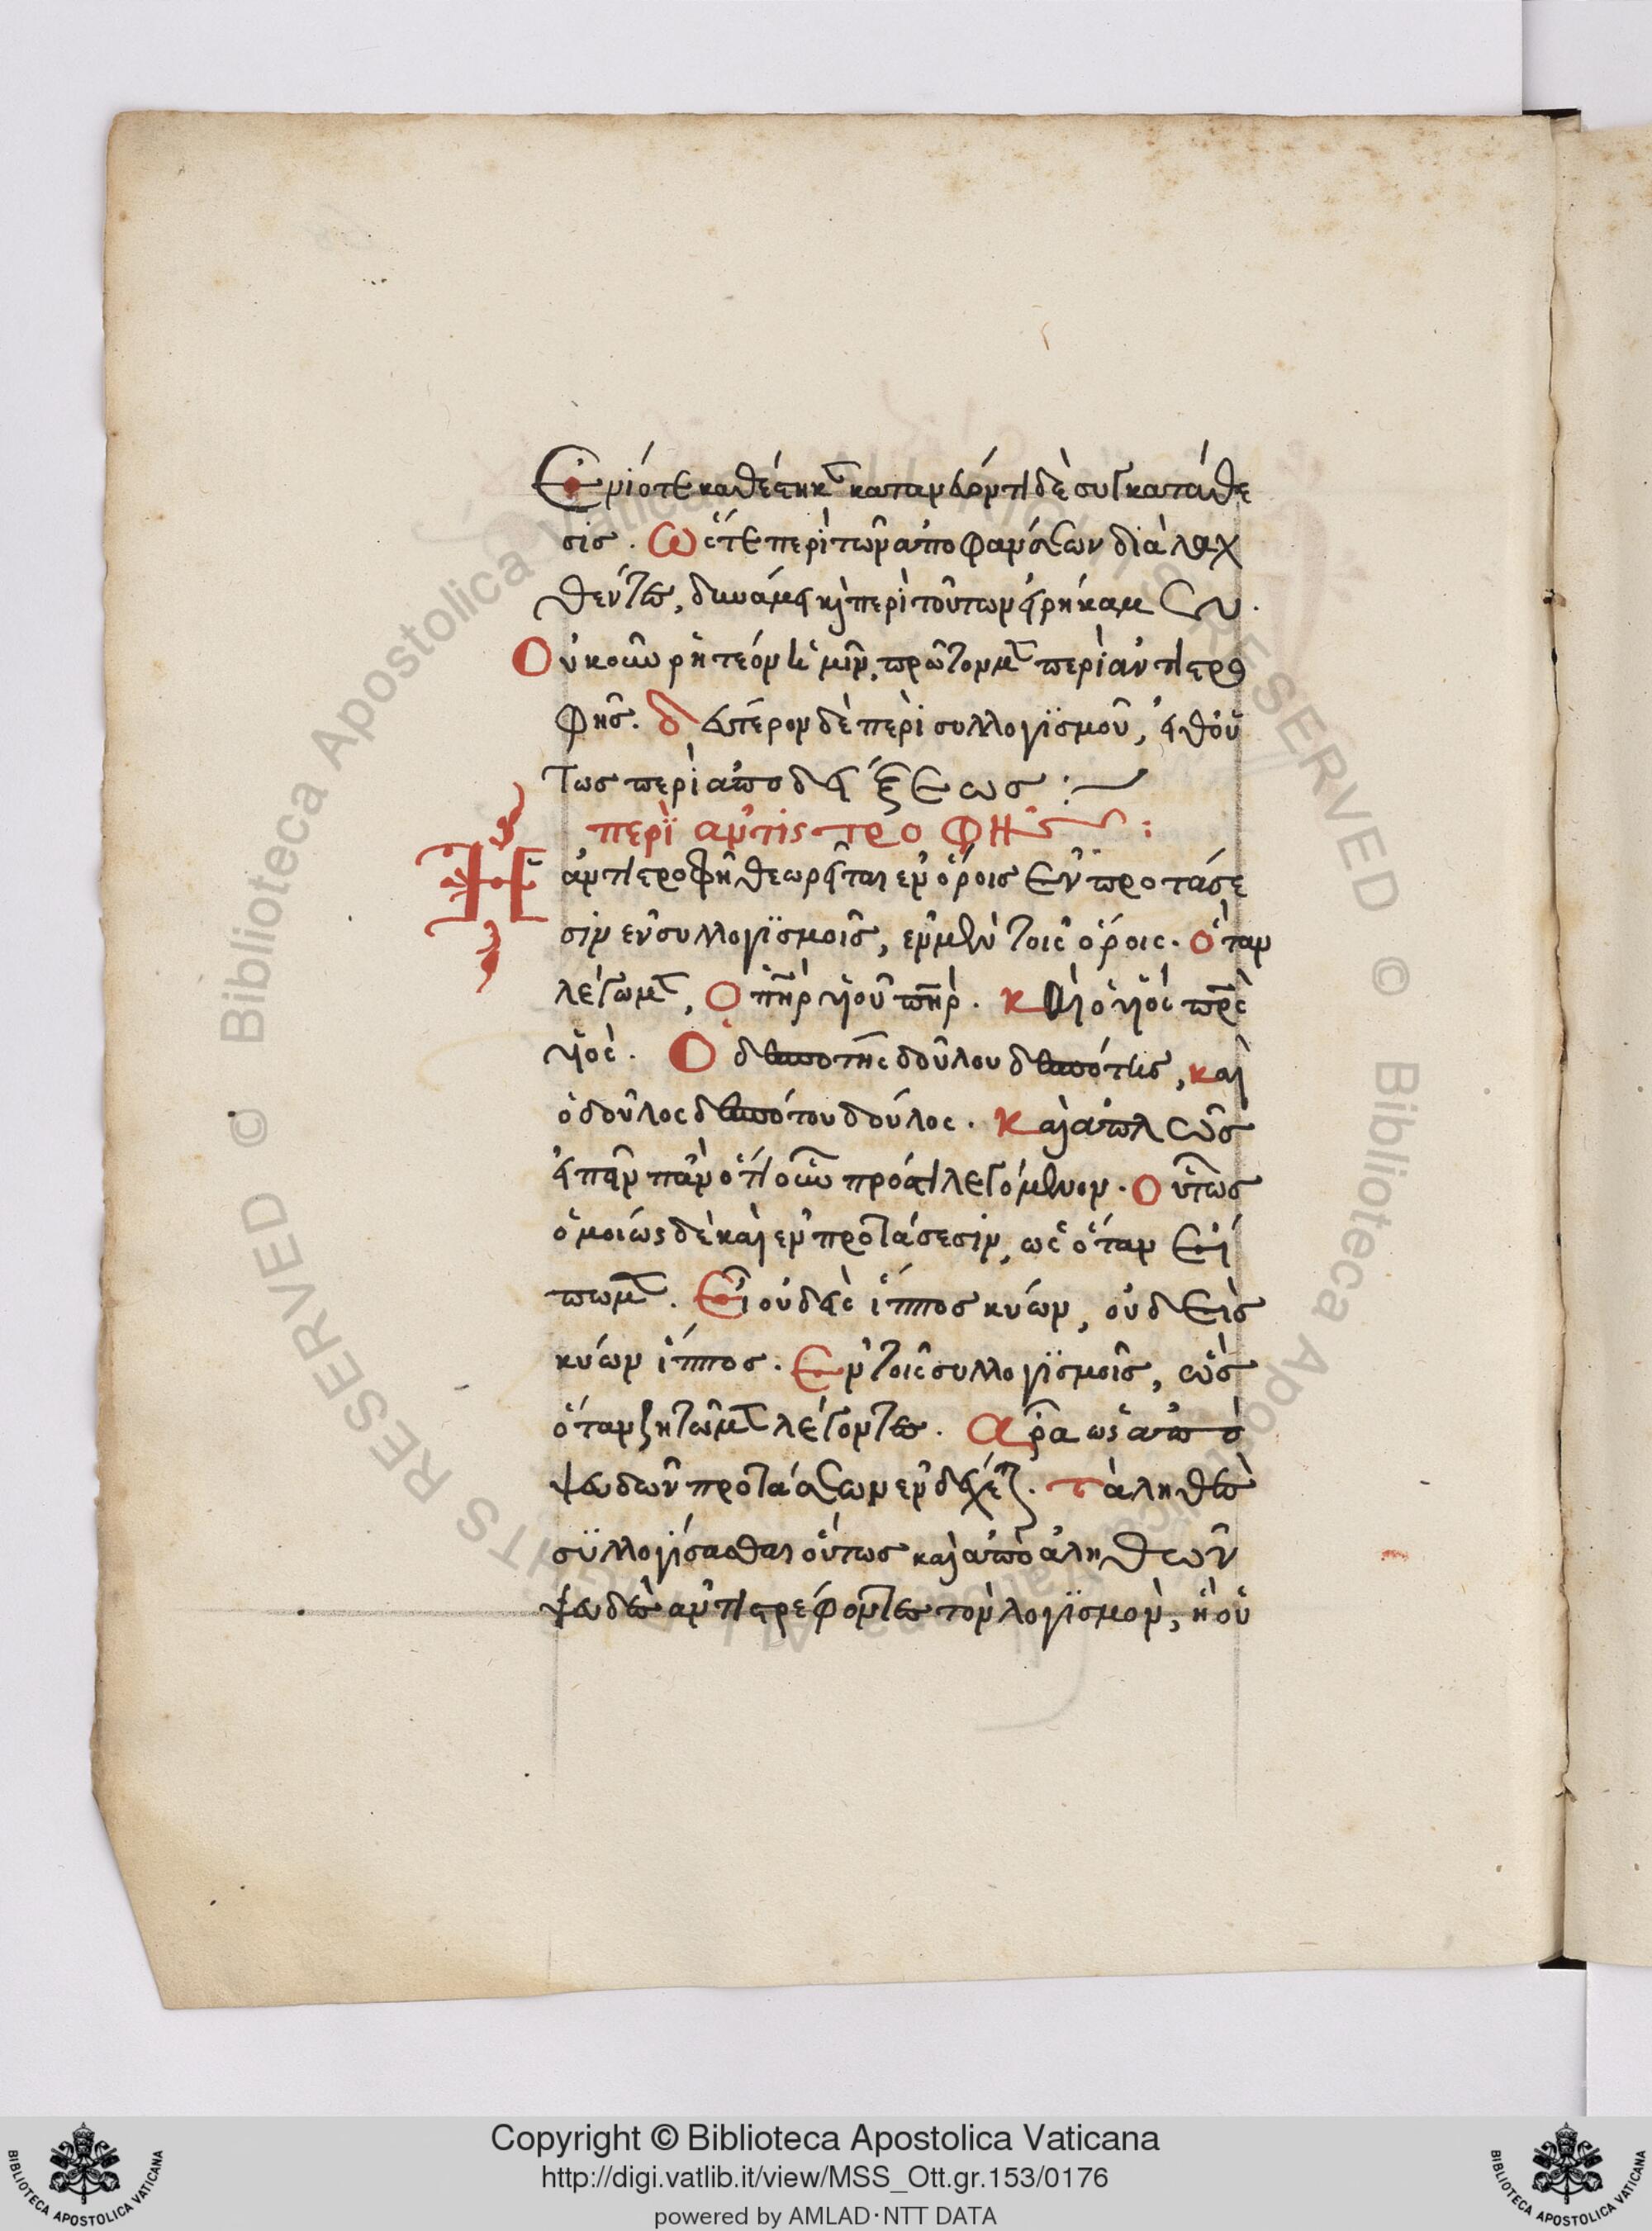 Ἐνιότε καθέστηκ κατανεύοντι δὲ συγκατάθε
σις. Ὥστε περὶ τῶν ἀποφάνσεων διαλεχ
θέντες, δυνάμει καὶ περὶ τούτων εἰρήκαμεν.
Οὐκοῦν ῥητέον ἡμῖν, πρῶτον μὲν περὶ ἀντιστρο
φῆς. δεύτερον δὲ περὶ συλλογισμοῦ, εἶθ' οὕ
τως περὶ ἀποδείξεως :
περὶ ἀντιστροφῆς :
Ἡ ἀντιστροφὴ θεωρεῖται ἐν ὅροις ἐν προτάσε
σιν ἐν συλλογισμοῖς, ἐν μὲν τοῖς ὅροις. ὅταν
λέγωμεν, Ὁ πηρ υἱοῦ πηρ. καὶ ὁ υἱὸς πρς
υἱός. Ὁ δεσπότης δούλου δεσπότης, καὶ
ὁ δοῦλος δεσπότου δοῦλος. Καὶ ἁπλῶς
εἰπεῖν πᾶν ὁτιοῦν πρός τι λεγόμενον. Οὕτως
ὁμοίως δὲ καὶ ἐν προτάσεσιν, ὡς ὅταν εἴ
πωμεν. Εἰ οὐδεὶς ἵππος κύων, οὐδεὶς
κύων ἵππος. Ἐν τοῖς συλλογισμοῖς, ὡς
ὅταν ζητῶμεν λέγοντες. Ἆρα ὡς ἀπὸ
ψευδῶν προτάσεων ἐνδέχεται. τἀληθὲς
συλλογίσασθαι οὕτως καὶ ἀπὸ ἀληθῶν
ψευδὲς ἀντιστρέφοντες τὸν λογισμὸν, ἢ οὐ
Copyright © Biblioteca Apostolica Vaticana
http://digi.vatlib.it/view/MSS_Ott.gr.153/0176
powered by AMLAD·NTT DATA
BIBLIOTECA APOSTOLICA VATICANA
BIBLIOTECA APOSTOLICA VATICANA